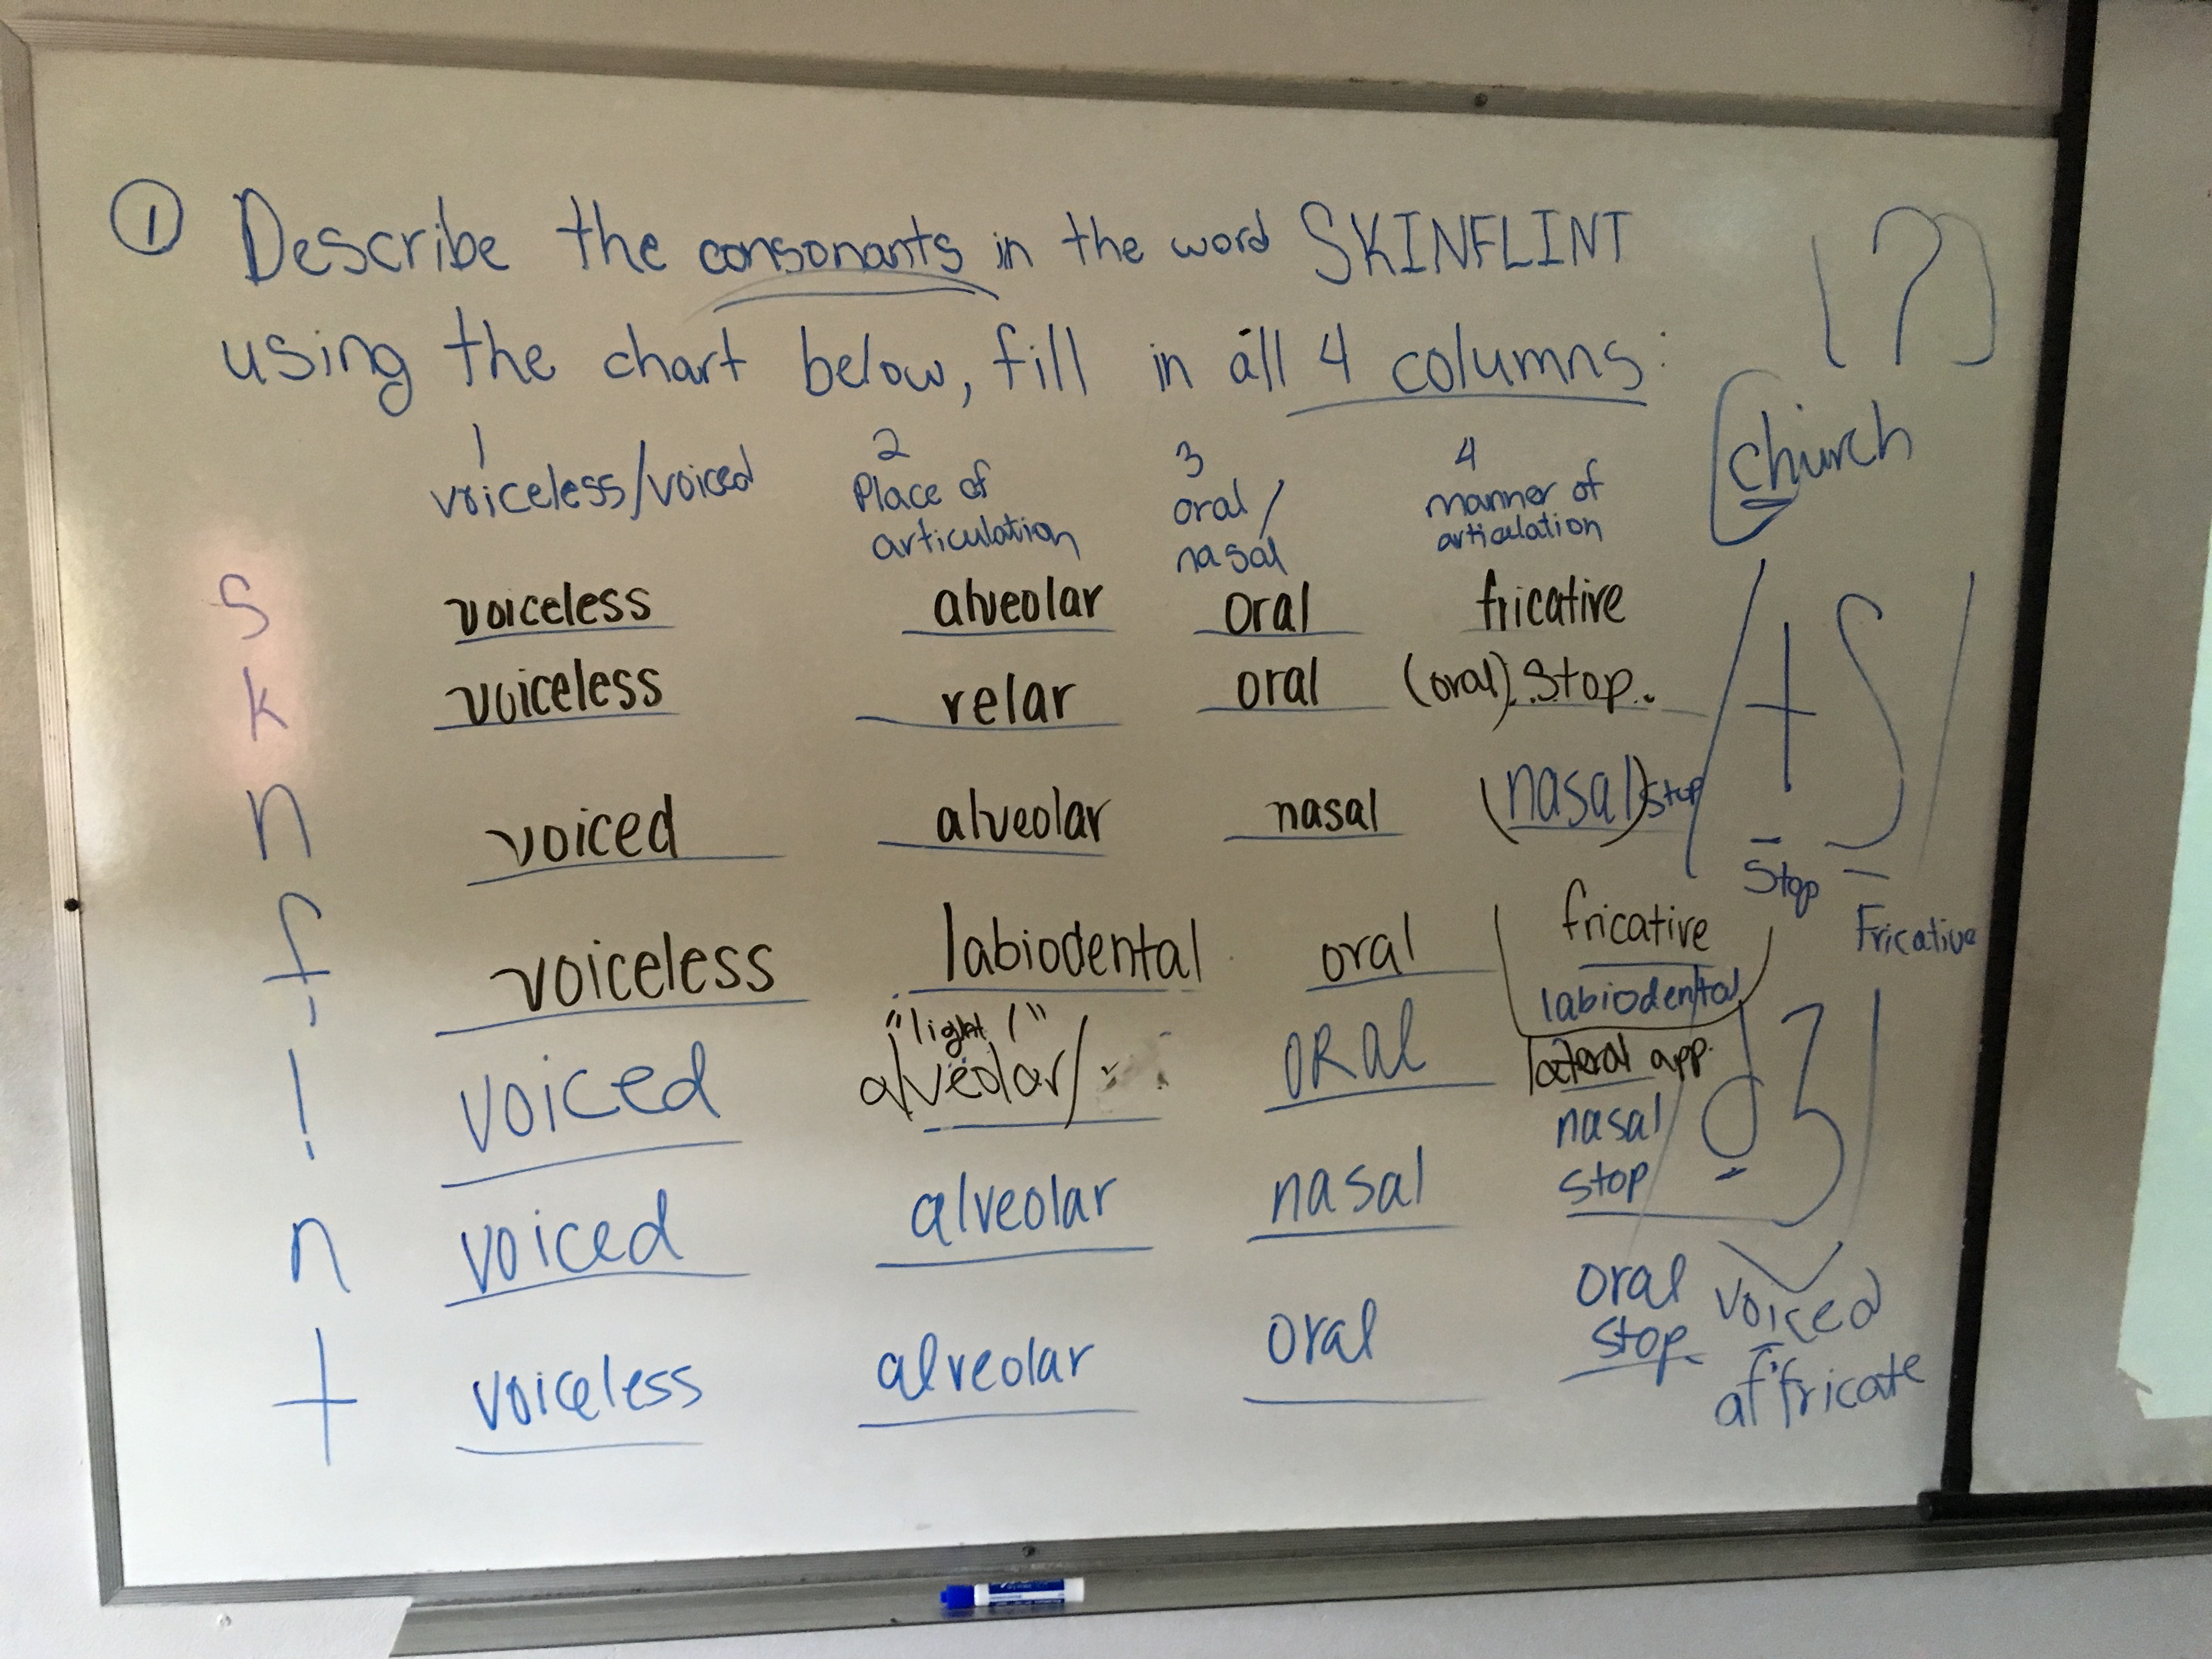 ① Describe the consonants in the word SKINFLINT
using the chart below, fill in all 4 columns:
1 2 3 4
voiceless/voiced Place of articulation oral/nasal manner of articulation
s voiceless alveolar oral fricative
k voiceless velar oral (oral) stop.
n voiced alveolar nasal (nasal) stop
f voiceless labiodental oral fricative
labiodental
"light l"
l voiced alveolar/ ORAL lateral app.
n voiced alveolar nasal nasal stop
t voiceless alveolar oral oral stop.
[ʔ]
Church
/tʃ/
Stop
Fricative
/dʒ/
voiced
affricate